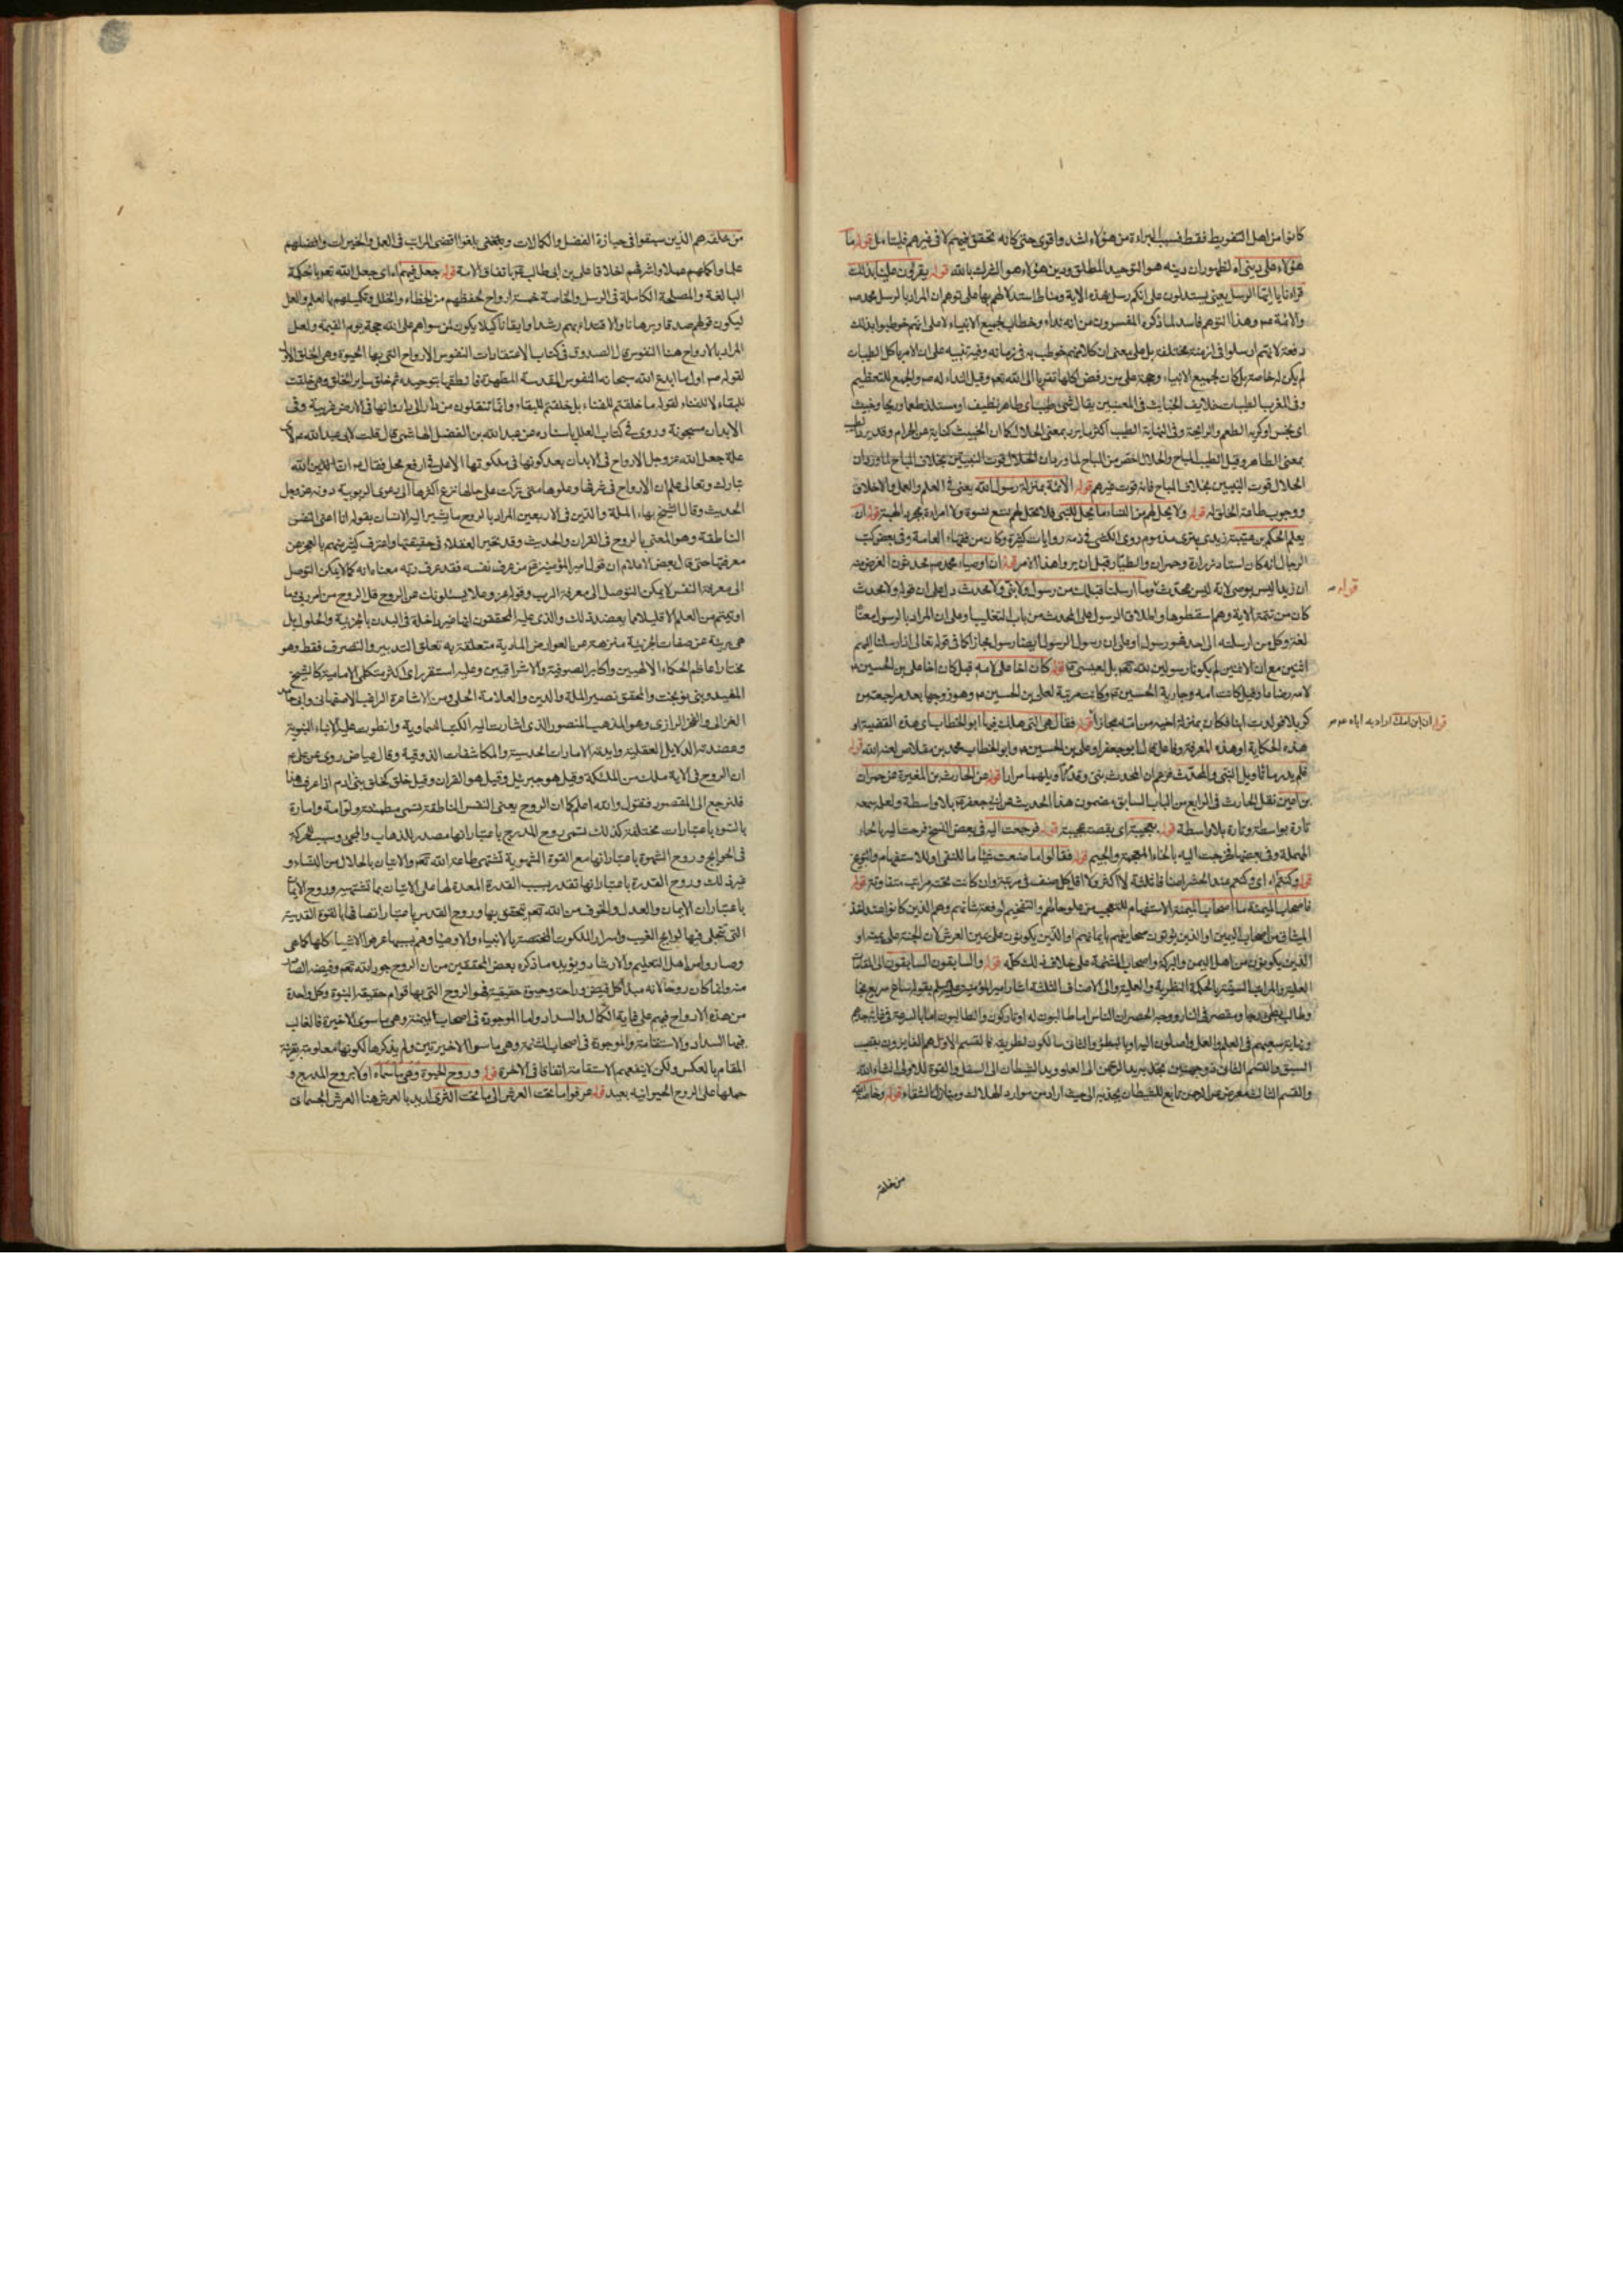 كانوا من اهل التفويط فقط فسبب البراءة من هؤلاء اشد واقوى حتى كانه تحقق فيهم لا في غيرهم فليتامل قوله ما
هؤلاء على ديني اه لظهور ان دينه هو التوحيد المطلق ودين هؤلاء هو الشرك بالله قوله يقرؤن علينا بذلك
قرانا يا ايها الرسل يعني يستدلون على انكم رسل بهذه الاية ومناط استدلالهم بها على توهم ان المراد بالرسل محمد ص
والائمة ع وهذا التوهم فاسد لما ذكره المفسرون من انه نداء وخطاب لجميع الانبياء لا على انهم خوطبوا بذلك
دفعة لانهم ارسلوا في ازمنة مختلفة بل على معنى ان كلا منهم خوطب به في زمانه وفيه تنبيه على ان الامر باكل الطيبات
لم يكن له خاصة بل كان لجميع الانبياء وحجة على من رفض اكلها تقربا الى الله تعالى وقيل النداء له ص والجمع للتعظيم
وفي المغرب الطيبات خلاف الخبائث في المعنيين يقال شيء طيب اي طاهر نظيف او مستلذ طعما وريحا وخبيث
اي نجس او كريه الطعم والرايحة وفي النهاية الطيب اكثر ما يرد بمعنى الحلال كما ان الخبيث كناية عن الحرام وقد يرد الطيب
بمعنى الطاهر وقيل الطيب المباح والحلال اخص من المباح لما ورد ان الحلال قوت النبيين بخلاف المباح لما ورد ان
الحلال قوت النبيين بخلاف المباح فانه قوت غيرهم قوله الائمة بمنزلة رسول الله يعني في العلم والعمل والاخلاق
ووجوب طاعة الخلق له قوله ولا يحل لهم من النساء ما يحل للنبي فلا يحل لهم تسع نسوة ولا امراة بمجرد الهبة قوله ان
يعلم الحكم بن عتيبة زيدي بتري مذموم روى الكشي في ذمه روايات كثيرة وكان من فقهاء العامة وفي بعض كتب
الرجال انه كان استاد زرارة وحمران والطيار قبل ان يروا هذا الامر قوله ان اوصياء محمد ص محدثون الغرض منه
ان زيدا ليس بوصي لانه ليس بمحدث وما ارسلنا قبلك من رسول ولا نبي ولا محدث دل على ان قوله ولا محدث
قوله ص
كان من تتمة الاية وهم اسقطوها واطلاق الرسول على المحدث من باب التغليب او على ان المراد بالرسول معناه
لغة وكل من ارسلته الى احد فهو رسول او على ان رسول الرسول ايضا رسول مجازا كما في قوله تعالى اذ ارسلنا اليهم
اثنين مع ان الاثنين لم يكونا رسولين لله تعالى بل لعيسى ع قوله كان اخا علي لامه قيل كان اخا علي بن الحسين ع
لامه رضاعا وقيل كانت امه جارية الحسين ع وكانت مربية لعلي بن الحسين ع وهو زوجها بعد مراجعته من
كربلا فولدت ابنا فكان بمنزلة اخيه من امه مجازا قوله فقال هي التي هلك فيها ابو الخطاب اي هذه القضية او
قوله ان ابن امك اراد به اباه ع م
هذه الحكاية او هذه المعرفة وفاعل قال ابو جعفر او علي بن الحسين ع وابو الخطاب محمد بن مقلاص لعنه الله قوله
فلم يدر ما تاويل النبي والمحدث فزعم ان المحدث نبي قوله عن الحارث بن المغيرة عن حمران
بن اعين نقل الحارث في الرابع من الباب السابق مضمون هذا الحديث عن ابي جعفر ع بلا واسطة ولعله سمعه
تارة بواسطة وتارة بلا واسطة قوله بعجيبة اي بقصة عجيبة قوله فرجعت اليه في بعض النسخ فرحت اليه بالحاء
المهملة وفي بعضها فخرجت اليه بالخاء المعجمة والجيم قوله فقالوا ما صنعت شيئا ما للنفي او للاستفهام والتوبيخ
قوله وكنتم اه اي وكنتم عند الحشر اصنافا ثلثة لا اكثر ولا اقل كل صنف في مرتبة وان كانت تحته مراتب متفاوتة قوله
فاصحاب الميمنة ما اصحاب الميمنة الاستفهام للتعجب من علو حالهم والتفخيم لرفعة شانهم وهم الذين كانوا عند اخذ
الميثاق من اصحاب اليمين او الذين يؤتون صحايفهم بايمانهم او الذين يكونون على يمين العرش لان الجنة على يمينه او
الذين يكونون من اهل اليمن والبركة واصحاب المشئمة على خلاف ذلك كله قوله والسابقون السابقون الى المقامات
العلية والمراتب السنية بالحكمة النظرية والعملية والى الاصناف الثلثة اشار امير المؤمنين عليه السلم بقوله ساع سريع نجا
وطالب بطيء رجا ومقصر في النار ووجه الحصر ان الناس اما طالبون له او تاركون والطالبون اما بالسرعة
ونهاية سعيهم في العلم والعمل واصلون اليه او بالبطؤ والثاني سالكون لطريقه فالقسم الاول هم الفايزون بقصب
السبق والقسم الثاني ذو وجهتين تجذبه يد الرحمن الى العلو ويد الشيطان الى السفل والقوة للاولى انشاء الله
والقسم الثالث معرض عن الرحمن تابع للشيطان يجذبه الى حيث اراد من موارد الهلاك ومنازل الشقاء قوله وخاصة الله
من خلقه
من خلقه هم الذين سبقوا في حيازة الفضل والكمالات وبلغوا اقصى المراتب في العمل والخيرات وافضلهم
علما واكملهم عملا واشرفهم اخلاقا علي بن ابي طالب ع باتفاق الامة قوله جعل فيهم اه اي جعل الله تعالى بالحكمة
البالغة والمصلحة الكاملة في الرسل والخاصة خمسة ارواح لحفظهم من الخطاء والخلل وتكميلهم بالعلم والعمل
ليكون قولهم صدقا وبرهانا والاقتداء بهم رشدا وايقانا كيلا يكون لمن سواهم على الله حجة يوم القيمة ولعل
المراد بالارواح هنا النفوس قال الصدوق في كتاب الاعتقادات النفوس الارواح التي بها الحيوة وهي الخلق الاول
لقوله ص اول ما ابدع الله سبحانه النفوس المقدسة المطهرة فانطقها بتوحيده ثم خلق ساير الخلق وهي خلقت
للبقاء لا للفناء لقوله ما خلقتم للفناء بل خلقتم للبقاء وانما تنقلون من دار الى دار وانها في الارض غريبة وفي
الابدان مسجونة وروى في كتاب العلل باسناده عن عبد الله بن الفضل الهاشمي قال قلت لابي عبد الله ع لاي
علة جعل الله عز وجل الارواح في الابدان بعد كونها في ملكوتها الاعلى في ارفع محل فقال ع ان الله
تبارك وتعالى علم ان الارواح في شرفها وعلوها متى تركت على حالها نزع اكثرها الى دعوى الربوبية دونه عز وجل
الحديث وقال الشيخ بهاء الملة والدين في الاربعين المراد بالروح ما يشير اليه الانسان بقوله انا اعني النفس
الناطقة وهو المعني بالروح في القران والحديث وقد تحير العقلاء في حقيقتها واعترف كثير منهم بالعجز عن
معرفتها حتى قال بعض الاعلام ان قول امير المؤمنين ع من عرف نفسه فقد عرف ربه معناه انه كما لا يمكن التوصل
الى معرفة النفس لا يمكن التوصل الى معرفة الرب وقوله عز وعلا يسئلونك عن الروح قل الروح من امر ربي وما
اوتيتم من العلم الا قليلا مما يعضد ذلك والذي عليه المحققون انها غير داخلة في البدن بالجزئية والحلول بل
هي بريئة عن صفات الجزئية منزهة عن العوارض المادية متعلقة به تعلق التدبير والتصرف فقط وهو
مختار اعاظم الحكماء الالهيين واكابر الصوفية والاشراقيين وعليه استقر راي اكثر متكلمي الامامية كالشيخ
المفيد وبني نوبخت والمحقق نصير الملة والدين والعلامة الحلي ومن الاشاعرة الراغب الاصفهاني وابي حامد
الغزالي والفخر الرازي وهو المذهب المنصور الذي اشارت اليه الكتب السماوية وانطوت عليه الانباء النبوية
وعضدته الدلايل العقلية وايدته الامارات الحدسية والمكاشفات الذوقية وقال عياض روى عن علي ع
ان الروح في الاية ملك من الملئكة وقيل هو جبرئيل وقيل هو القران وقيل خلق كخلق بني ادم اذا عرفت هذا
فلنرجع الى المقصود فنقول والله اعلم كما ان الروح يعني النفس الناطقة تسمى مطمئنة ولوامة وامارة
بالسوء باعتبارات مختلفة كذلك تسمى روح المدرج باعتبار انها مصدر للذهاب والمجيء وسبب للحركة
في الحوايج وروح الشهوة باعتبار انها مع القوة الشهوية تشتهي طاعة الله تعالى والاتيان بالحلال من النساء و
غير ذلك وروح القدرة باعتبار انها تقدر بسبب القدرة المعدة لها على الاتيان بما تشتهيه وروح الايمان
باعتبار ان الايمان والعدل والخوف من الله تعالى يتحقق بها وروح القدس باعتبار اتصافها بالقوة القدسية
التي تتجلى فيها لوايح الغيب واسرار الملكوت المختصة بالانبياء والاوصياء وهم بسببها عرفوا الاشياء كلها كما هي
وصاروا من اهل التعليم والارشاد ويؤيده ما ذكره بعض المحققين من ان الروح جود الله تعالى وفيضه الصادر
منه وانما كان روحا لانه مبدأ كل فيض وراحة وحيوة حقيقية فهو الروح التي بها قوام حقيقة النبوة وكل واحدة
من هذه الارواح فيهم على غاية الكمال والسداد واما الموجودة في اصحاب الميمنة وهي ما سوى الاخيرة فالغالب
فيها السداد والاستقامة والموجودة في اصحاب المشئمة وهي ما سوى الاخيرتين ولم يذكرها لكونها معلومة بقرينة
المقام بالعكس ولكن لا ينفعهم الاستقامة اتفاقا في الاخرة قوله وروح الحيوة وهي ما سماه اولا بروح المدرج و
حملها على الروح الحيوانية بعيد قوله عرفوا ما تحت العرش الى ما تحت الثرى اريد بالعرش هنا العرش الجسماني